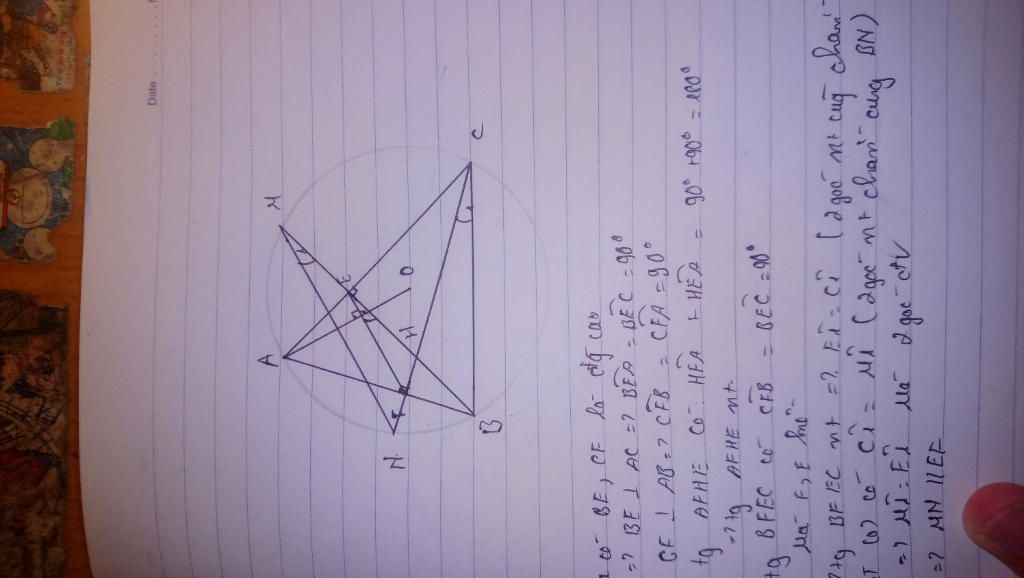 Date
A
M
N
E
F
H
O
B
C
có BE, CF là đg cao
=> BE ⊥ AC => BÊA = BÊC = 90°
CF ⊥ AB => CF̂B = CF̂A = 90°
tg AFHE có HÊA + HF̂A = 90° + 90° = 180°
=> tg AFHE nt
tg BFEC có CF̂B = BÊC = 90°
Mà F, E
tg BFEC nt => Ê1 = Ĉ1 (2 góc nt cùng chắn
có Ĉ1 = M̂1 (2 góc nt chắn cung BN)
=> M̂1 = Ê1 Mà 2 góc đv
=> MN // EF